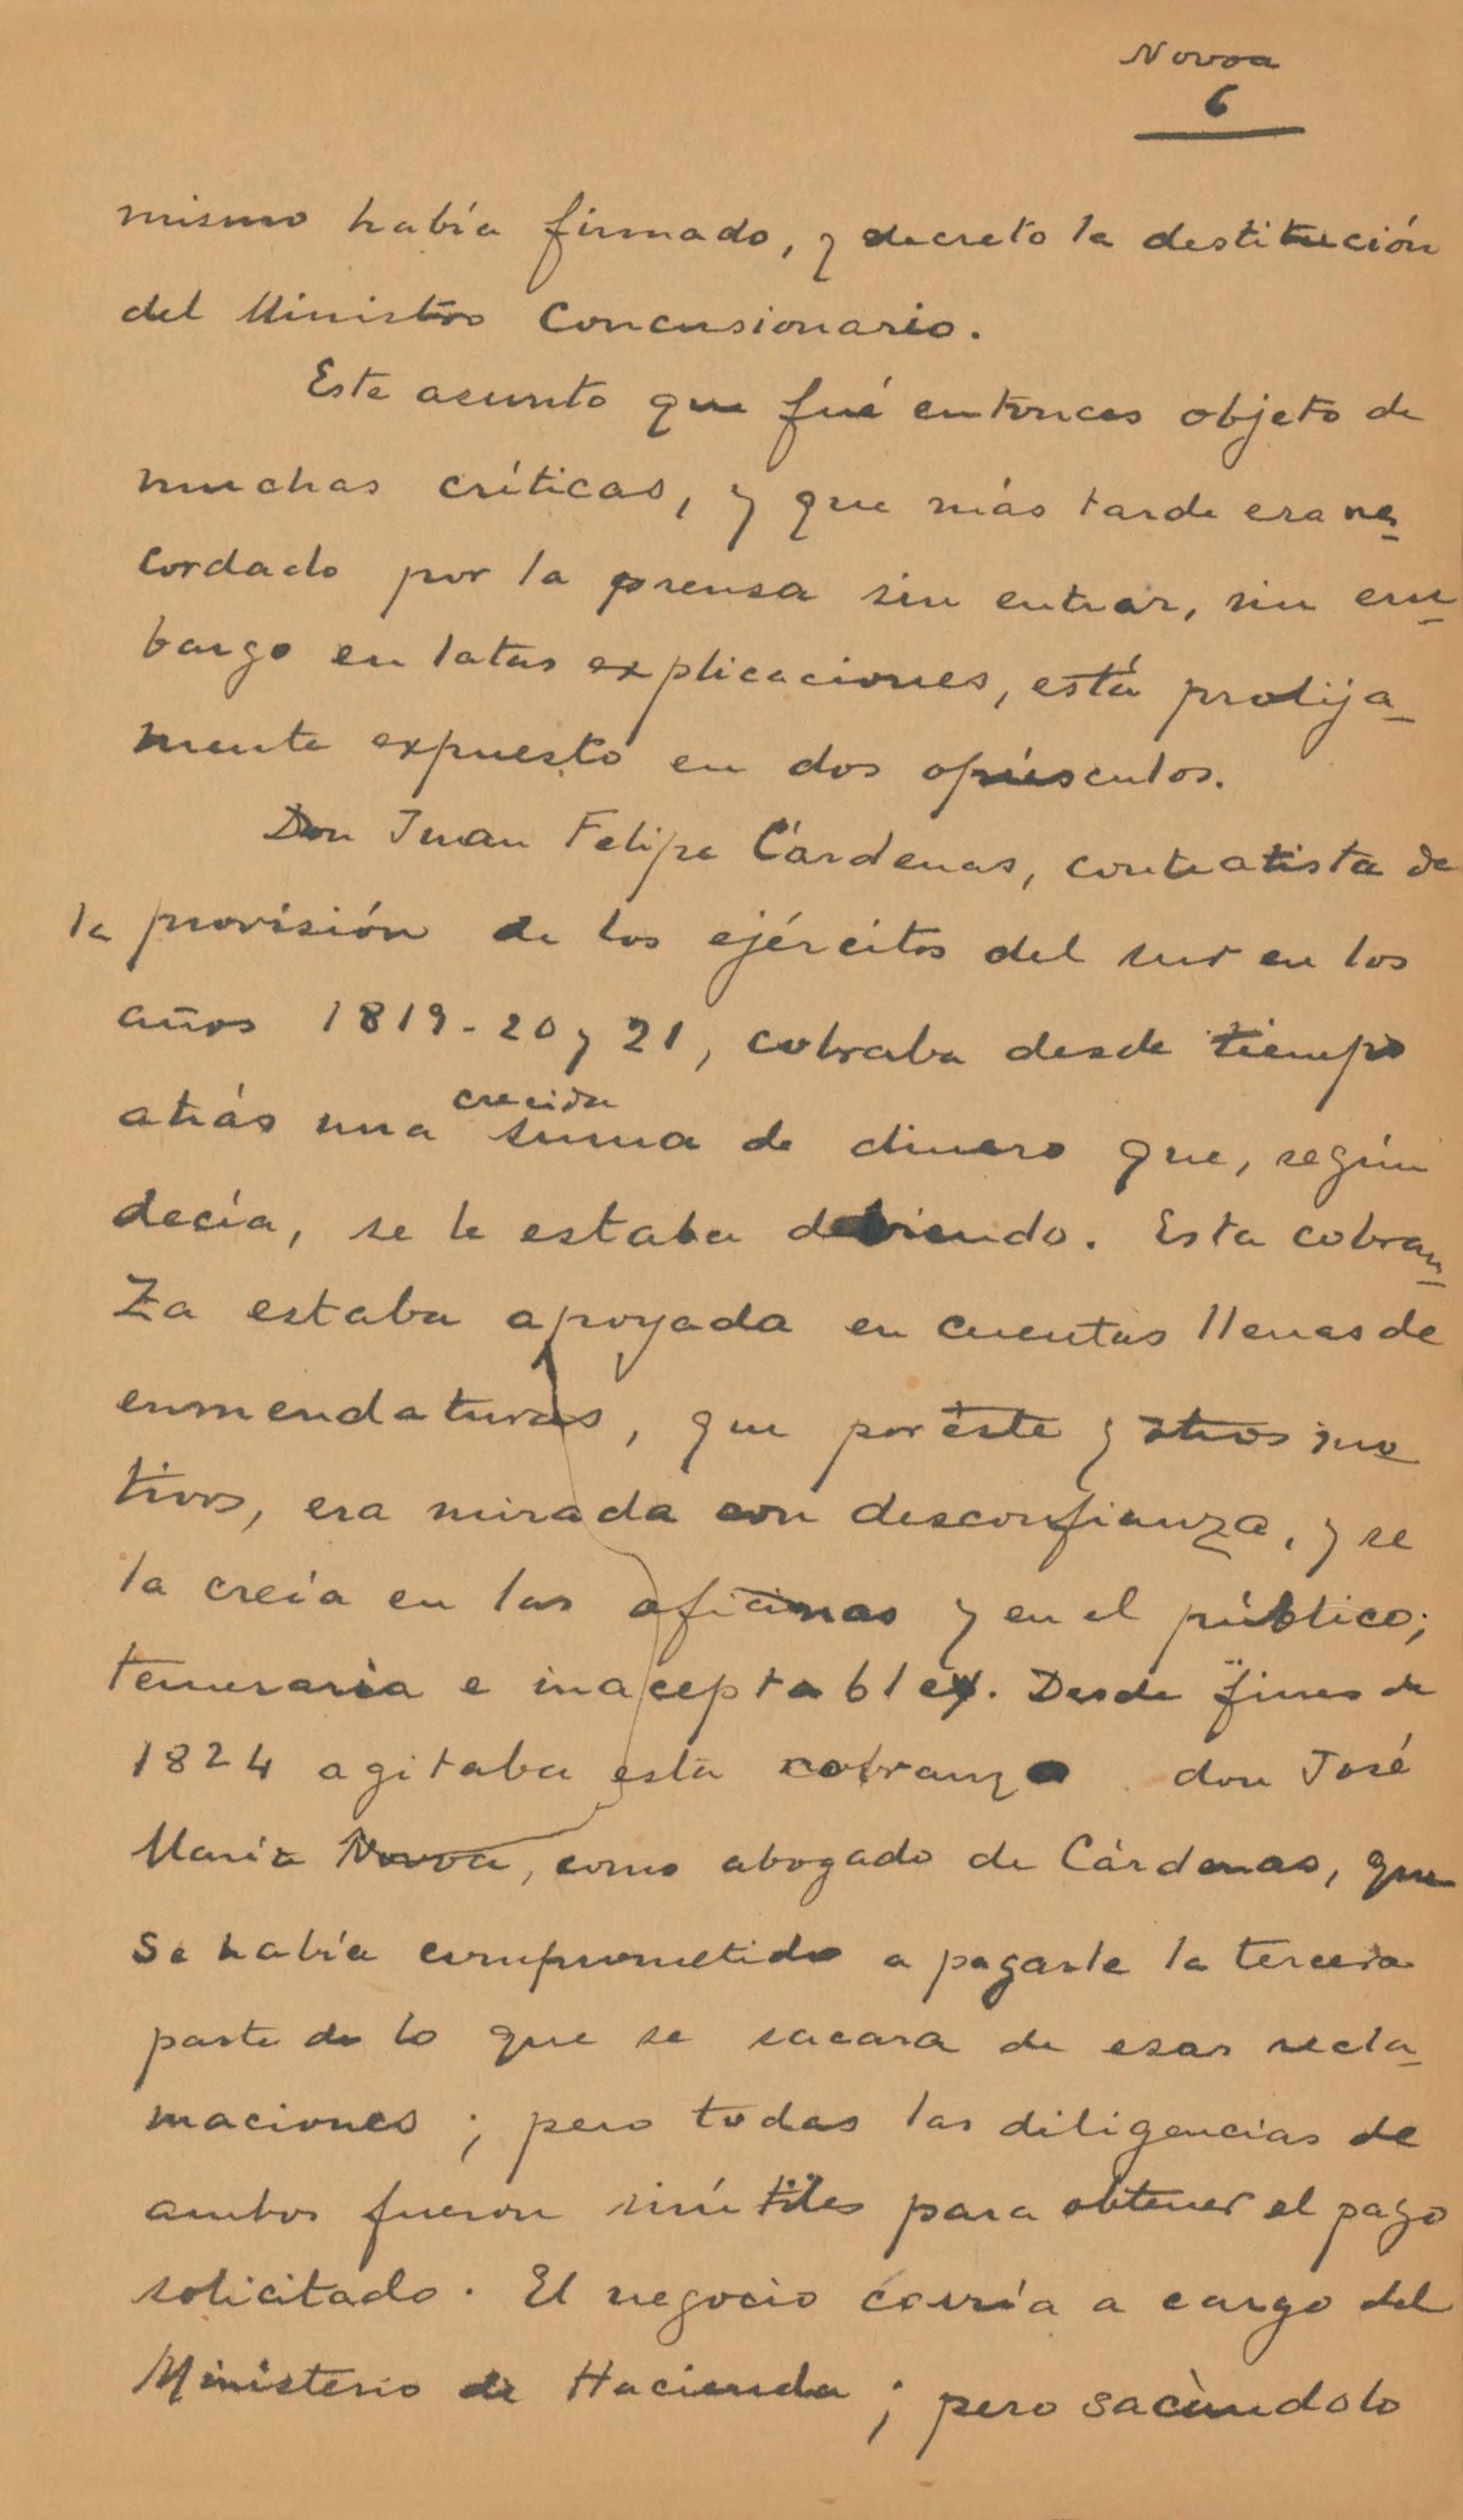 Novoa
6
mismo había firmado, y decreto la destitución
del Ministro Concusionario.
Este asunto que fué entonces objeto de
muchas críticas, y que más tarde era re-
cordado por la prensa sin entrar, sin em-
bargo en latas explicaciones, está prolija-
mente expuesto en dos opúsculos.
Don Juan Felipe Cárdenas, contratista de
la provisión de los ejércitos del sur en los
años 1819-20 y 21, cobraba desde tiempo
atrás una crecida suma de dinero que, según
decía, se le estaba debiendo. Esta cobran-
za estaba apoyada en cuentas llenas de
enmendaturas, que por éste y otros mo
tivos, era mirada con desconfianza, y se
la creía en las oficinas y en el público;
temeraria e inaceptable. Desde fines de
1824 agitaba esta cobranza don José
María Novoa, como abogado de Cárdenas, que
se había comprometido a pagarle la tercera
parte de lo que se sacara de esas recla-
maciones; pero todas las diligencias de
ambos fueron inútiles para obtener el pago
solicitado. El negocio corría a cargo del
Ministerio de Hacienda; pero sacàndolo